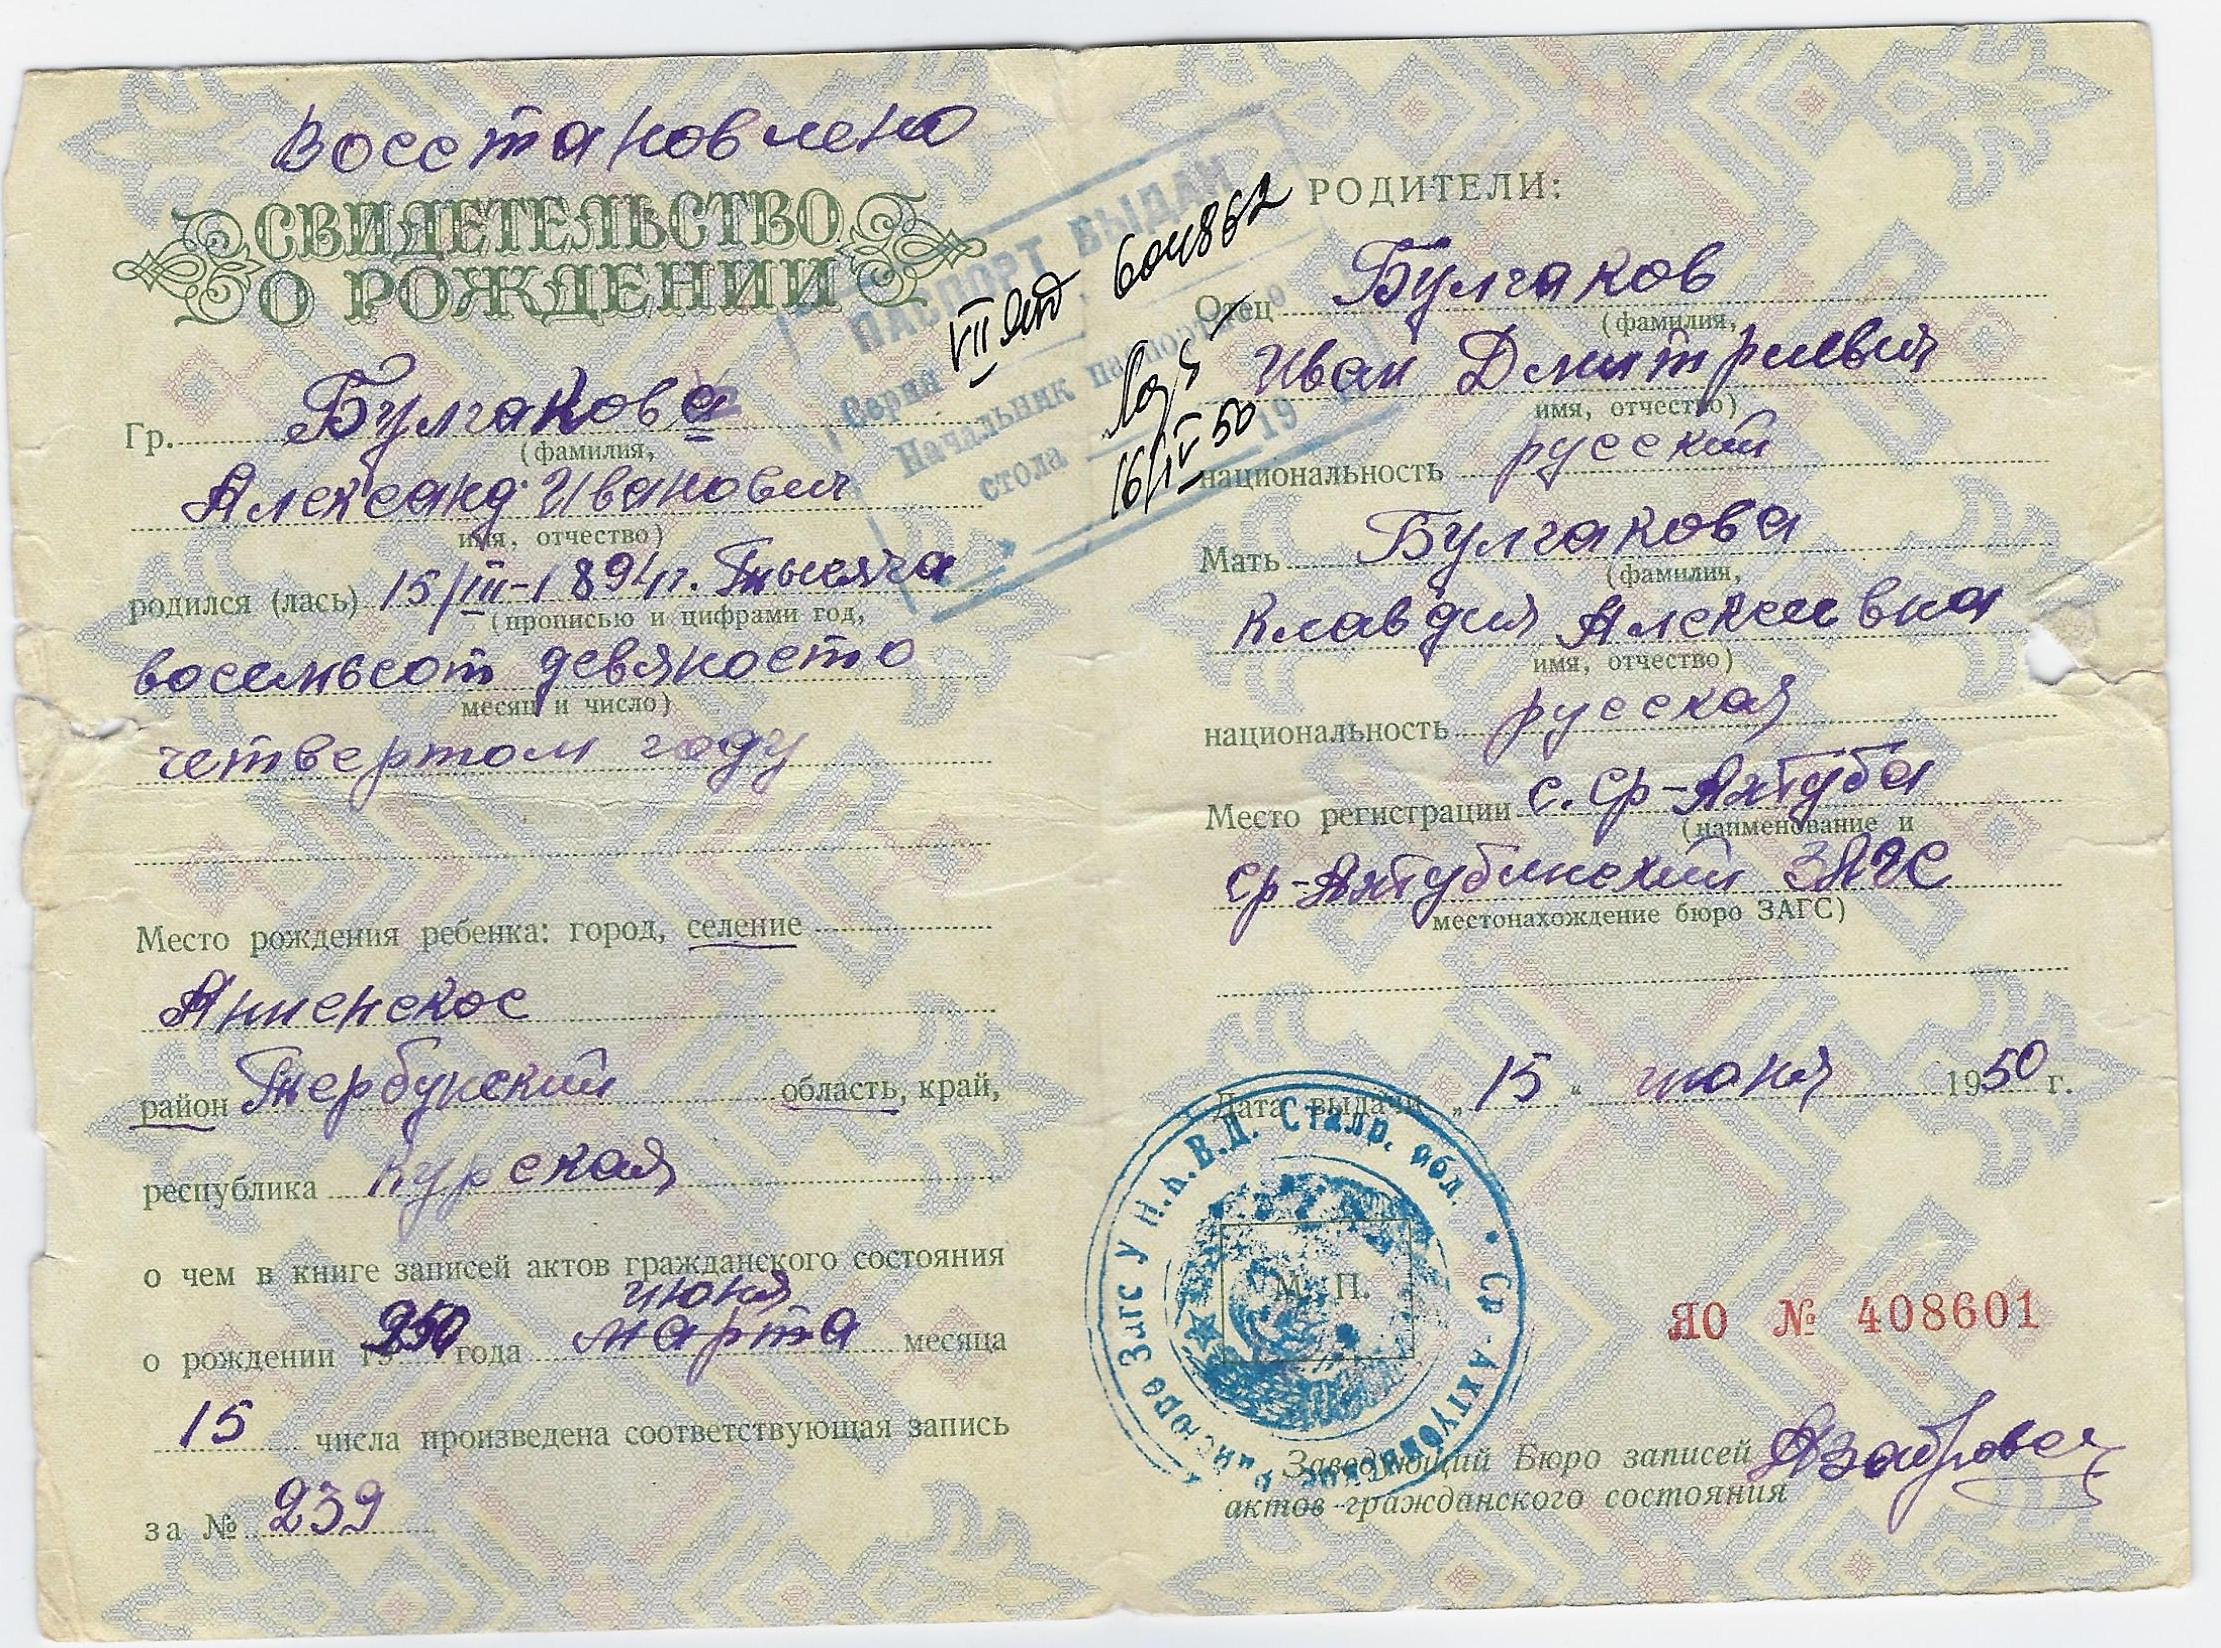 Восстановлено
СВИДЕТЕЛЬСТВО
О РОЖДЕНИИ
Гр. Булгакова
(фамилия,
Александ. Иванович
имя, отчество)
родился (лась) 15/III-1894г. Тысяча
(прописью и цифрами год,
восемьсот девяносто
месяц и число)
четвертом году
Место рождения ребенка: город, селение
Анненское
район Тербунский область, край,
республика Курская
о чем в книге записей актов гражданского состояния
июня
о рождении 1950 года марта месяца
15 числа произведена соответствующая запись
за № 239
ПАСПОРТ ВЫДАН
Серия VII ЯТ 604862
Начальник паспортного
стола
16/IV 50 19
РОДИТЕЛИ:
Отец Булгаков
(фамилия,
Иван Дмитриевич
имя, отчество)
национальность русский
Мать Булгакова
(фамилия,
Клавдия Алексеевна
имя, отчество)
национальность русская
Место регистрации с. Ср-Ахтуба
(наименование и
Ср-Ахтубинский ЗАГС
местонахождение бюро ЗАГС)
Дата выдачи „15“ июня 1950 г.
М. П.
Бюро Загс У Н.К.В.Д. Сталр. обл. • Ср-Ахтубинское
ЯО № 408601
Заведующий Бюро записей
актов гражданского состояния